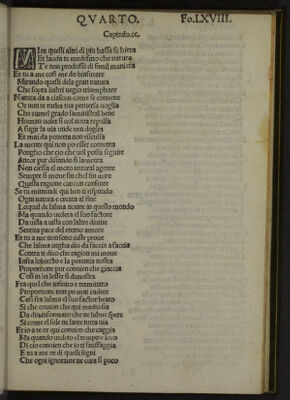 QVARTO.
Fo.LXVIII.
Capitulo.ix.
MIra quelli altri di piu bassa schiera
Et lauda te medesimo che natura
Te non produsse di simil maniera
Et tu a me cosi me do biasimare
Mirando quelli dela gran natura
Che sopra laltri uegio triumphare
Natura da a ciascun come se conuene
Or non te turba tua peruersa noglia
Che comel grado sumministral bene
Human uoler si uol noua repulsa
A fugir la uia unde uen doglia
Et mai da pouetta non
La mente qui non po esser contenta
Pongho che cio che uol possa seguire
Ancor pur disiando si lamenta
Non cessa el moto natural agere
Sempre si moue sin chel sin mire
Questa ragione ciascun consente
Se tu mittendi qui ben ti rispondo
Ogni natura e creata al fine
Loqual de lalma nonne in questo mondo
Ma quando uedera el suo factore
Da uista a uista con laltre diuine
Sentira pace del eterno amore
Et tu a me non sono iuste proue
Che lalma uegha dio da faccia a faccia
Contra ti dico che ragion mi moue
Infra lobiecto e la potentia nostra
Proportione pur conuien che giaccia
Cosi in lei lesser si dimostra
Fra quel che infinito e terminato
Proportione non po mai cadere
Cosi fia lalma el suo factor beato
Si che conuin che qui moiosia
Da disinformato che ne lalme spere
Si come el sole ne laere tutta uia
Et io a te er qui conuien che caggia
Ma quando uederò el tempo e loco
Di cio conuien che io ti satisfaggia
E tu a me er di quelli segni
Che ogni ignorante ne cura si poco